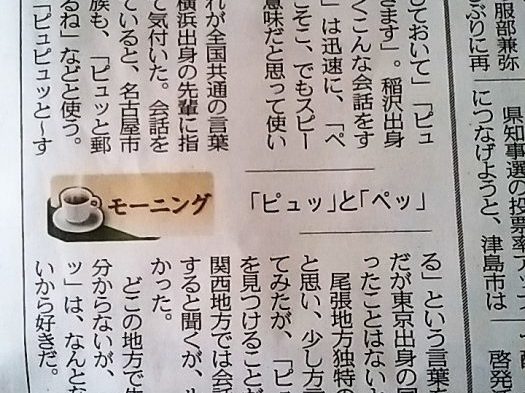 服部兼弥
ぶりに再
県知事選の投票率ア
につなげようと、津島市は
啓発
しておいて」「ピュ
きます」。稲沢出身
くこんな会話をす
」は迅速に、「ペ
こそこ、でもスピー
意味だと思って使い
れが全国共通の言葉
横浜出身の先輩に指
て気付いた。会話を
ていると、名古屋市
族も、「ピュッと郵
るね」などと使う。
「ピュピュッと～す
「ピュッ」と「ペッ」
モーニング
る」という言葉を
だが東京出身の
ったことはない
尾張地方独特の
と思い、少し方
てみたが、「ピュ
を見つけることが
関西地方では会話
すると聞くが、
かった。
どこの地方で
分からないが、
ッ」は、なんとな
いから好きだ。